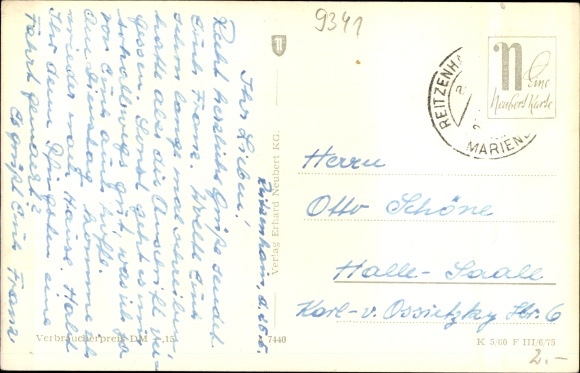 9341
Reitzenhain, d. 15.6.
Ihr Lieben!
Recht herzliche Grüße sendet
Euch Franz. Wollte Euch
schon lange mal schreiben,
hatte aber die Anschrift ver-
gessen. Sonst geht es mir
so halbwegs gut, was ich ja
von Euch auch hoffe.
Am Dienstag komme ich
wieder nach Hause. Habt
Ihr denn Pfingsten eine
Fahrt gemacht?
Es grüßt Euch Franz
Verlag Erhard Neubert KG.
7440
Verbraucherpreis DM -,15
REITZENH
MARIENB
n
Eine
Neubert Karte
Herrn
Otto Schöne
Halle-Saale
Karl-v. Ossietzky Str. 6
K 5/60 F III/6/75
2.-